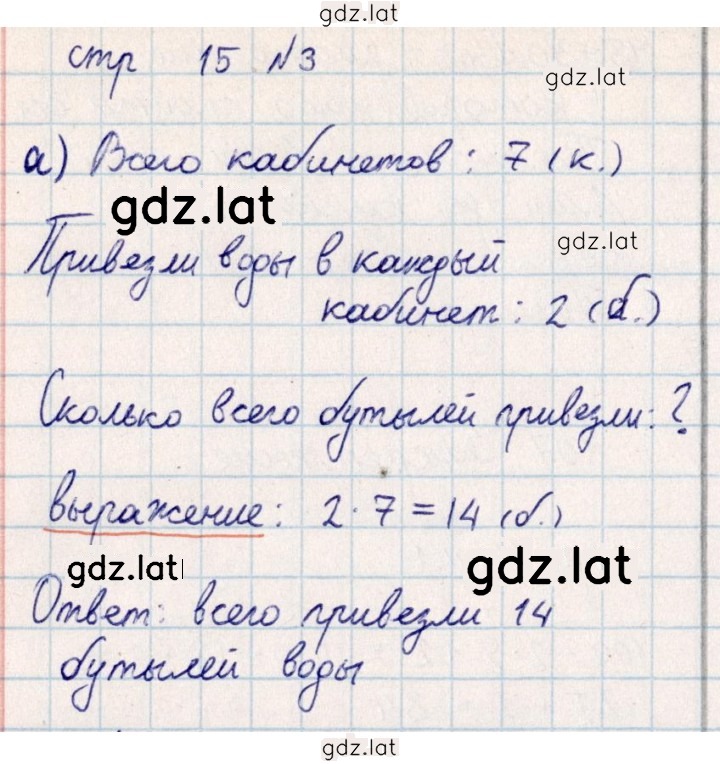 gdz.lat
стр 15 №3
gdz.lat
а) Всего кабинетов: 7 (к.)
gdz.lat
Привезли воды в каждый
gdz.lat
кабинет: 2 (б.)
Сколько всего бутылей привезли: ?
выражение: 2·7=14 (б.)
gdz.lat
gdz.lat
Ответ: всего привезли 14
бутылей воды
gdz.lat